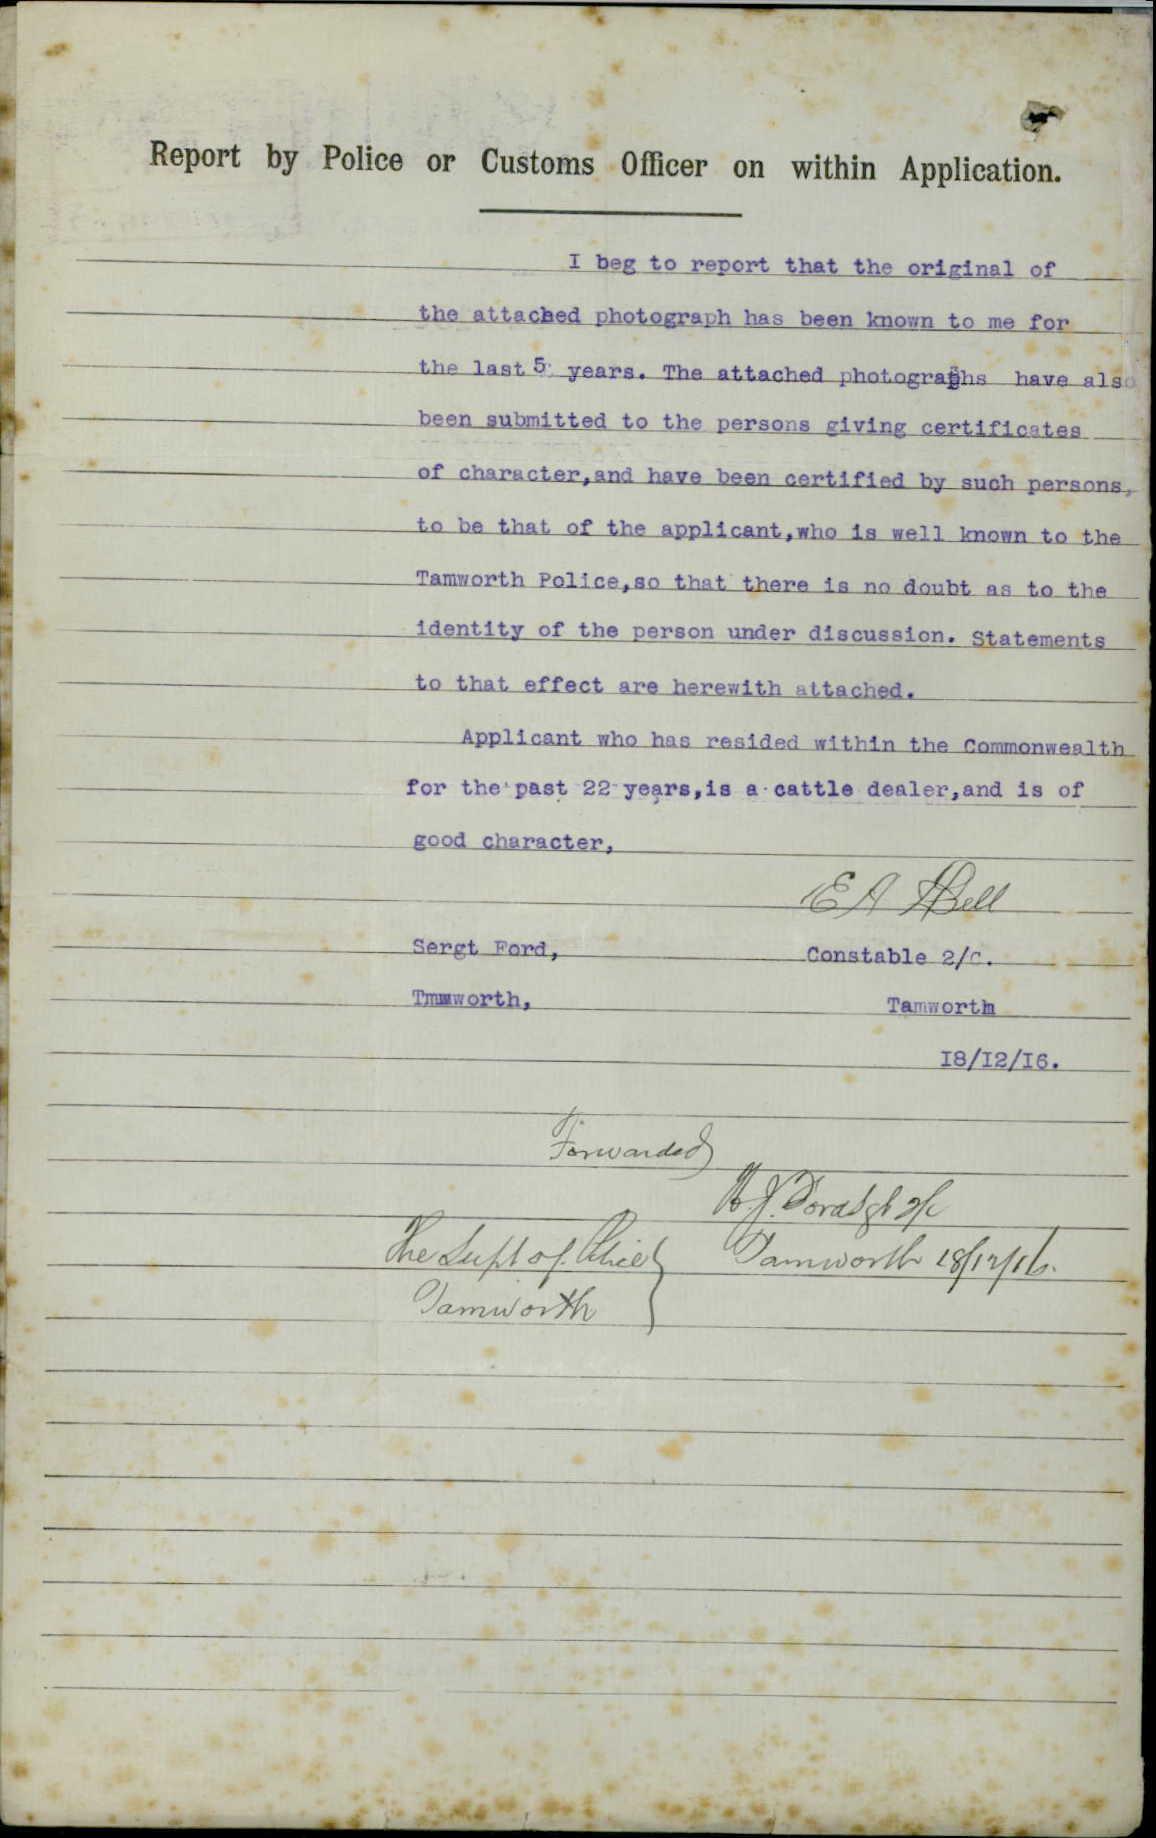 Report by Police or Customs Officer on within Application.
I beg to report that the original of
the attached photograph has been known to me for
the last 5 years. The attached photographs have also
been submitted to the persons giving certificates
of character,and have been certified by such persons,
to be that of the applicant,who is well known to the
Tamworth Police,so that there is no doubt as to the
identity of the person under discussion. Statements
to that effect are herewith attached.
Applicant who has resided within the Commonwealth
for the past 22 years,is a cattle dealer,and is of
good character,
E A Bell
Sergt Ford, Constable 2/C.
Tmmworth, Tamworth
I8/I2/I6.
Forwarded
J. Ford Sgt 2/c
The Supt of Police Tamworth 18/12/16.
Tamworth